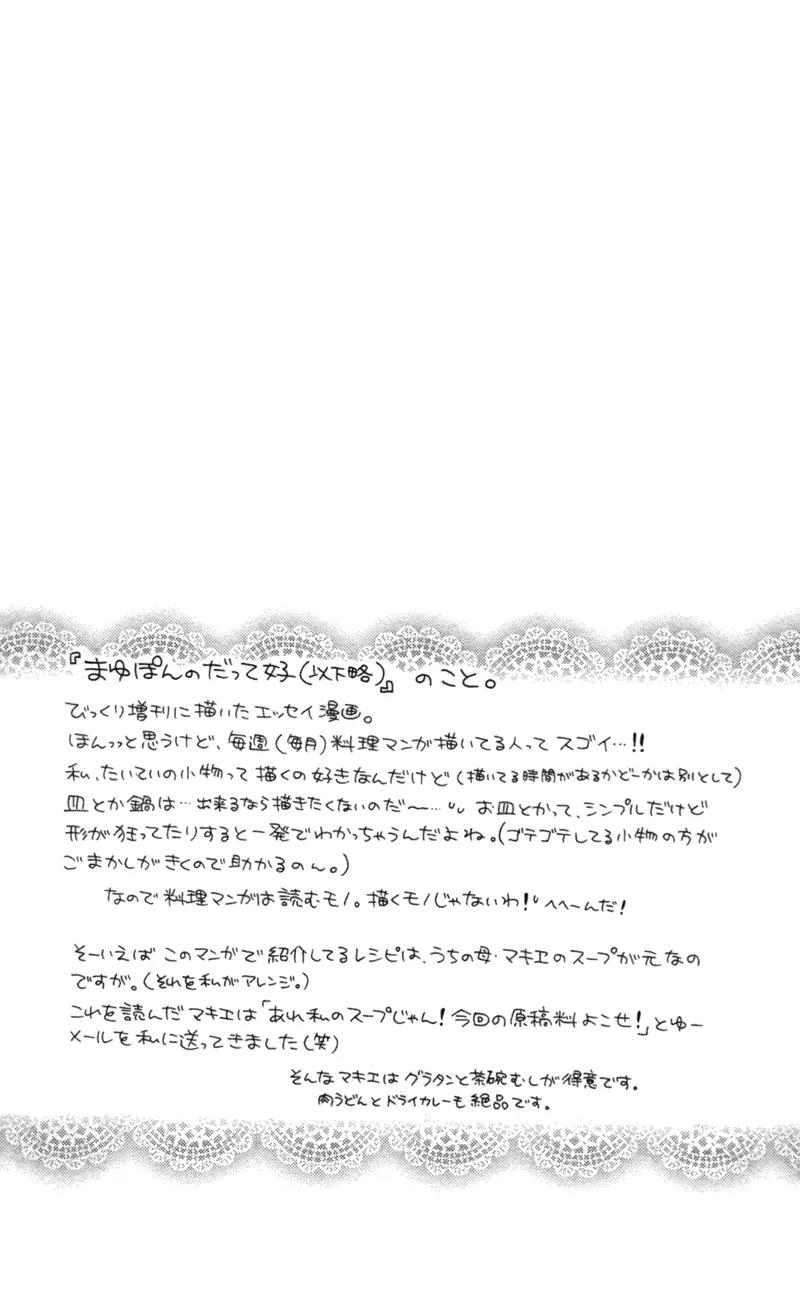 『まゆぽんのだって好(以下略)』のこと。
びっくり増刊に描いたエッセイ漫画。
ほんっっと思うけど、毎週(毎月)料理マンガ描いてる人ってスゴイ…!!
私、たいていの小物って描くの好きなんだけど(描いてる時間があるかどーかは別として)
皿とか鍋は…出来るなら描きたくないのだ〜… お皿とかって、シンプルだけど
形が狂ってたりすると一発でわかっちゃうんだよね。(ゴテゴテしてる小物の方が
ごまかしがきくので助かるのん。)
なので料理マンガは読むモノ。描くモノじゃないわ! へへーんだ!
そーいえばこのマンガで紹介してるレシピは、うちの母・マキエのスープが元なの
ですが。(それを私がアレンジ。)
これを読んだマキエは「あれ私のスープじゃん!今回の原稿料よこせ!」とゆー
メールを私に送ってきました(笑)
そんなマキエはグラタンと茶碗むしが得意です。
肉うどんとドライカレーも絶品です。